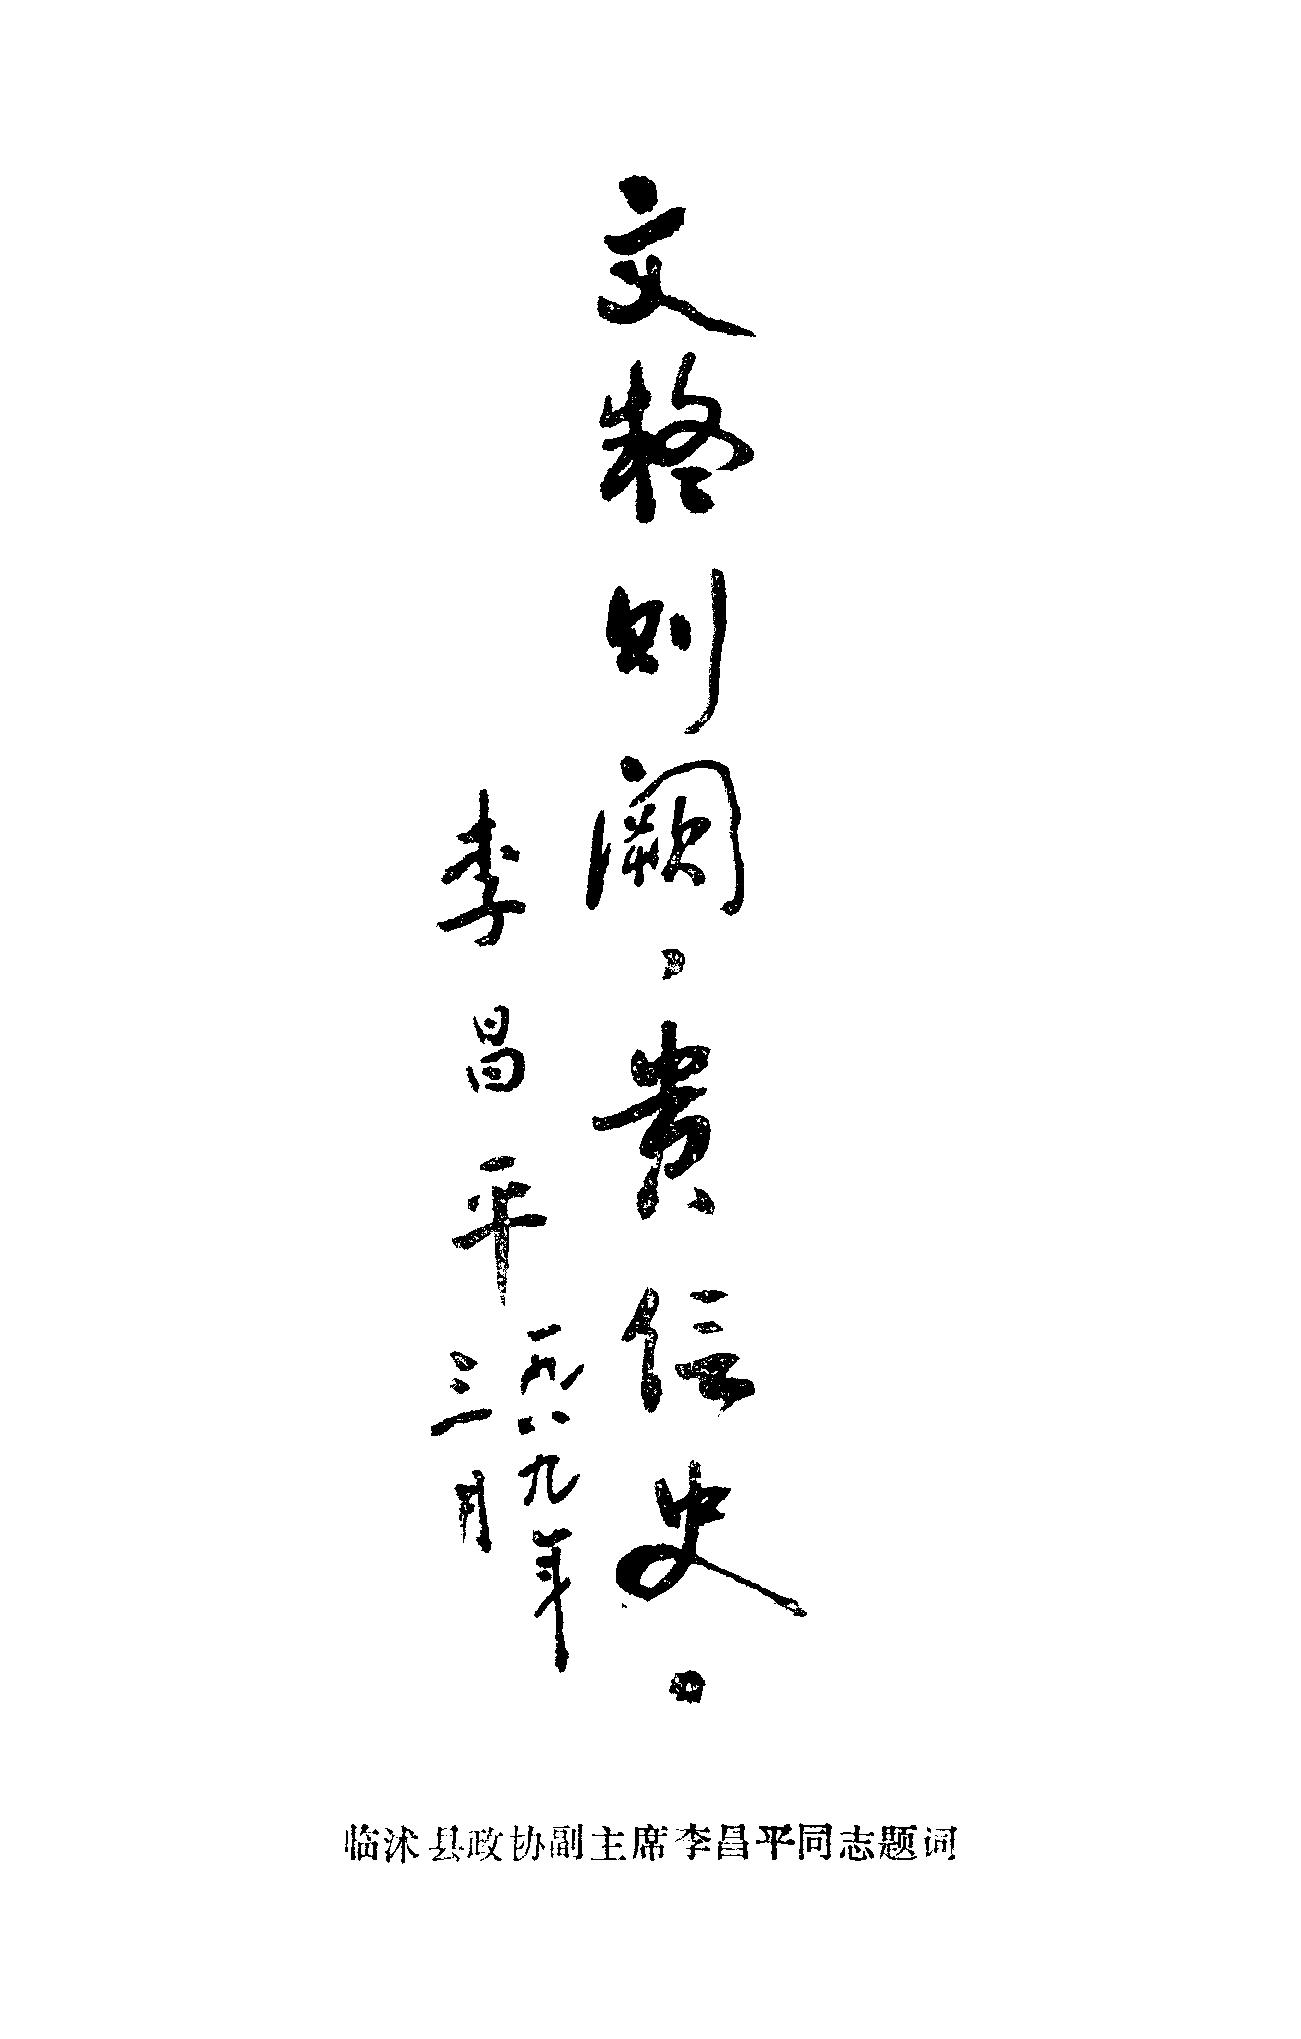 文疑则阙，贵信史。
李昌平
一九八九年
三月
临沭县政协副主席李昌平同志题词